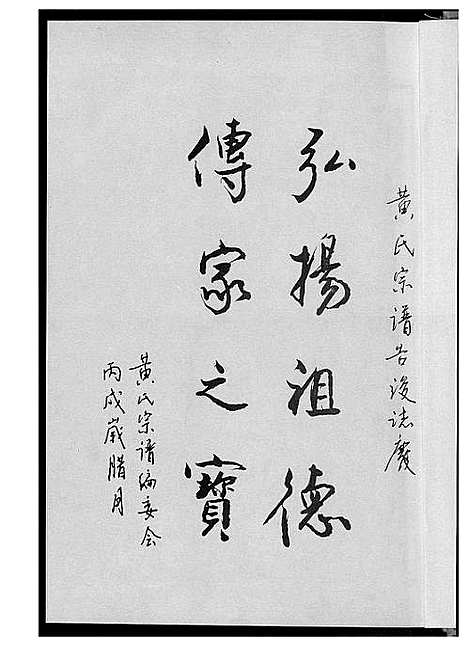 黄氏宗谱告竣志慶
弘揚祖德
傳家之寶
黄氏宗谱编委会
丙戌歲腊月